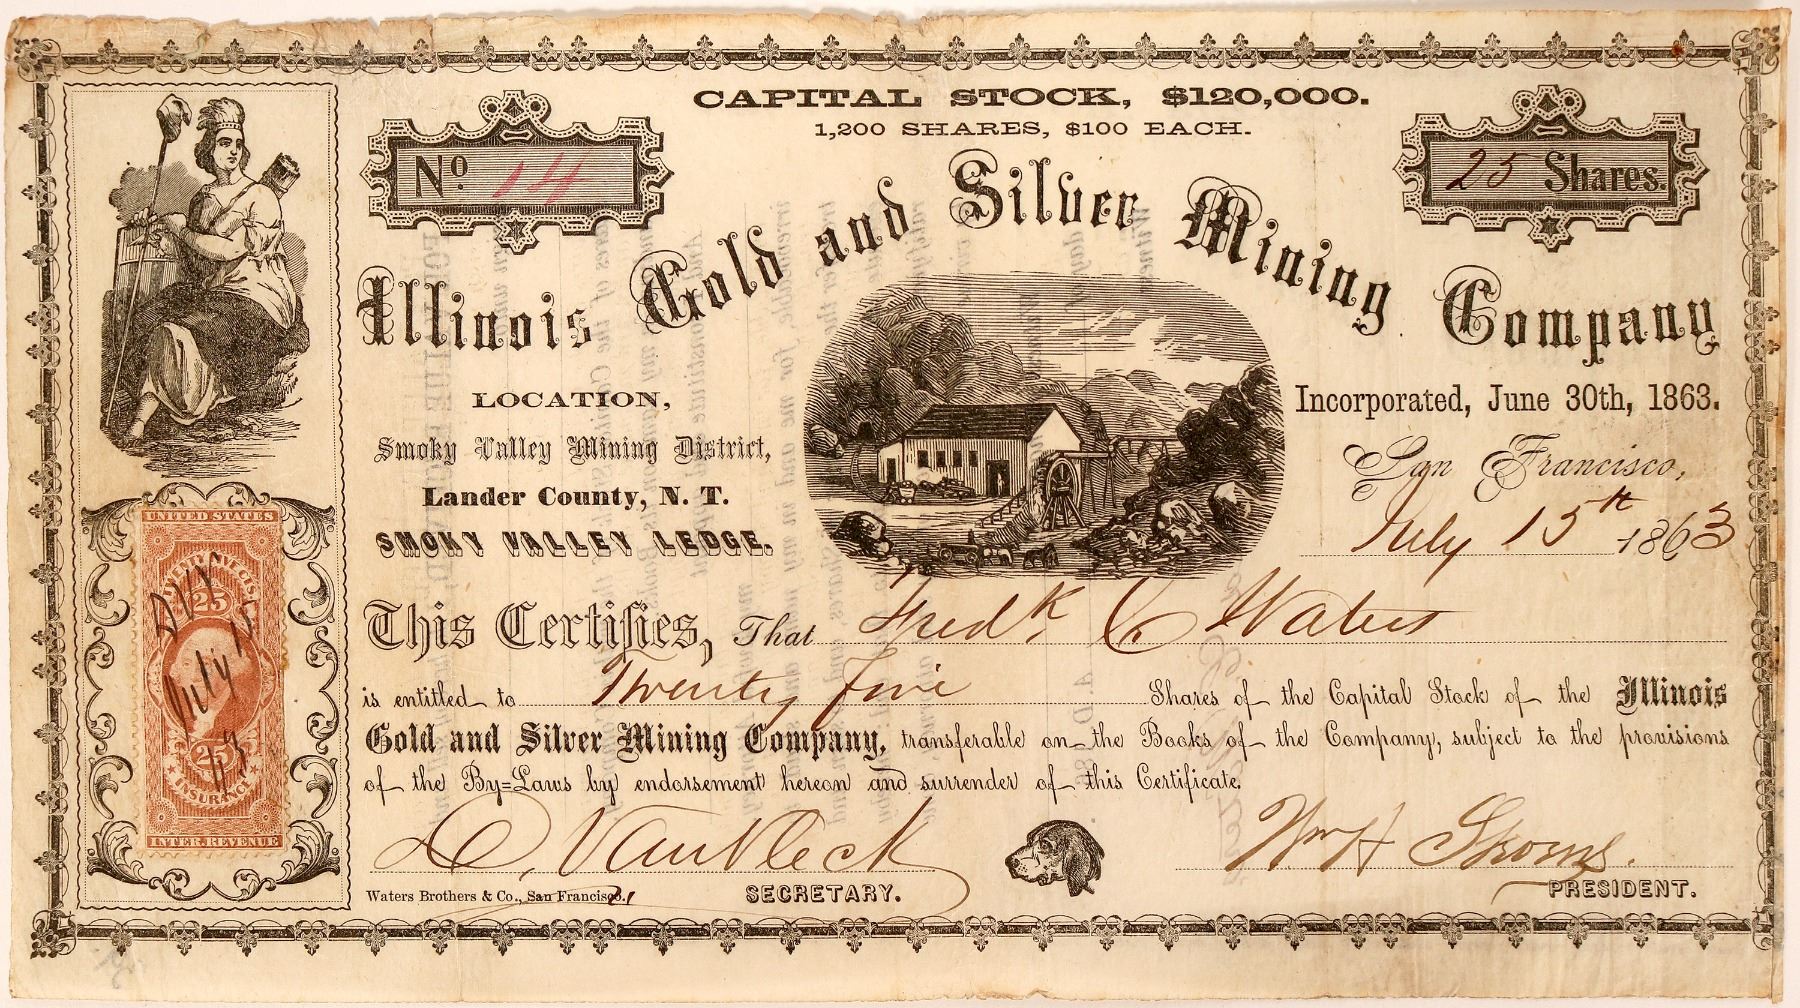 CAPITAL STOCK, $120,000.
1,200 SHARES, $100 EACH.
No. 14
25 Shares.
Illinois Gold and Silver Mining Company
Incorporated, June 30th, 1863.
LOCATION,
Smoky Valley Mining District,
Lander County, N. T.
SMOKY VALLEY LEDGE.
San Francisco,
July 15th 1863
This Certifies, That Fredk C Waters
is entitled to Twenty five Shares of the Capital Stock of the Illinois
Gold and Silver Mining Company, transferable on the Books of the Company, subject to the provisions
of the By=Laws by endorsement hereon and surrender of this Certificate.
D. VanVleck
Wm H
SECRETARY.
PRESIDENT.
Waters Brothers & Co., San Francisco.
UNITED STATES
25
DVV
July 15
63
25
INSURANCE
INTER. REVENUE